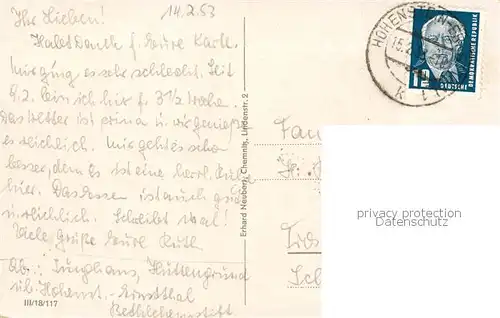 Ihr Lieben! 14.2.53
Habt Dank f. Eure Karte.
Mir ging es sehr schlecht. Seit
9.2. bin ich hier f. 3½ Woche.
Das Wetter ist prima u. wir genießen
es reichlich. Mir geht es schon
besser, denn es ist eine herrl.
hier. Das Essen ist auch gut
u. reichlich. Schreibt mal!
Viele Grüße Eure Ruth
Ab.: Junghans, Hüttengrund
üb. Hohenst.-Ernstthal
Bethlehemstift
III/18/117
Erhard Neubert, Chemnitz, Lindenstr. 2
HOHENSTEIN-ER
15.2
DEUTSCHE
DEMOKRATISCHE REPUBLIK
Fam
privacy protection
Datenschutz